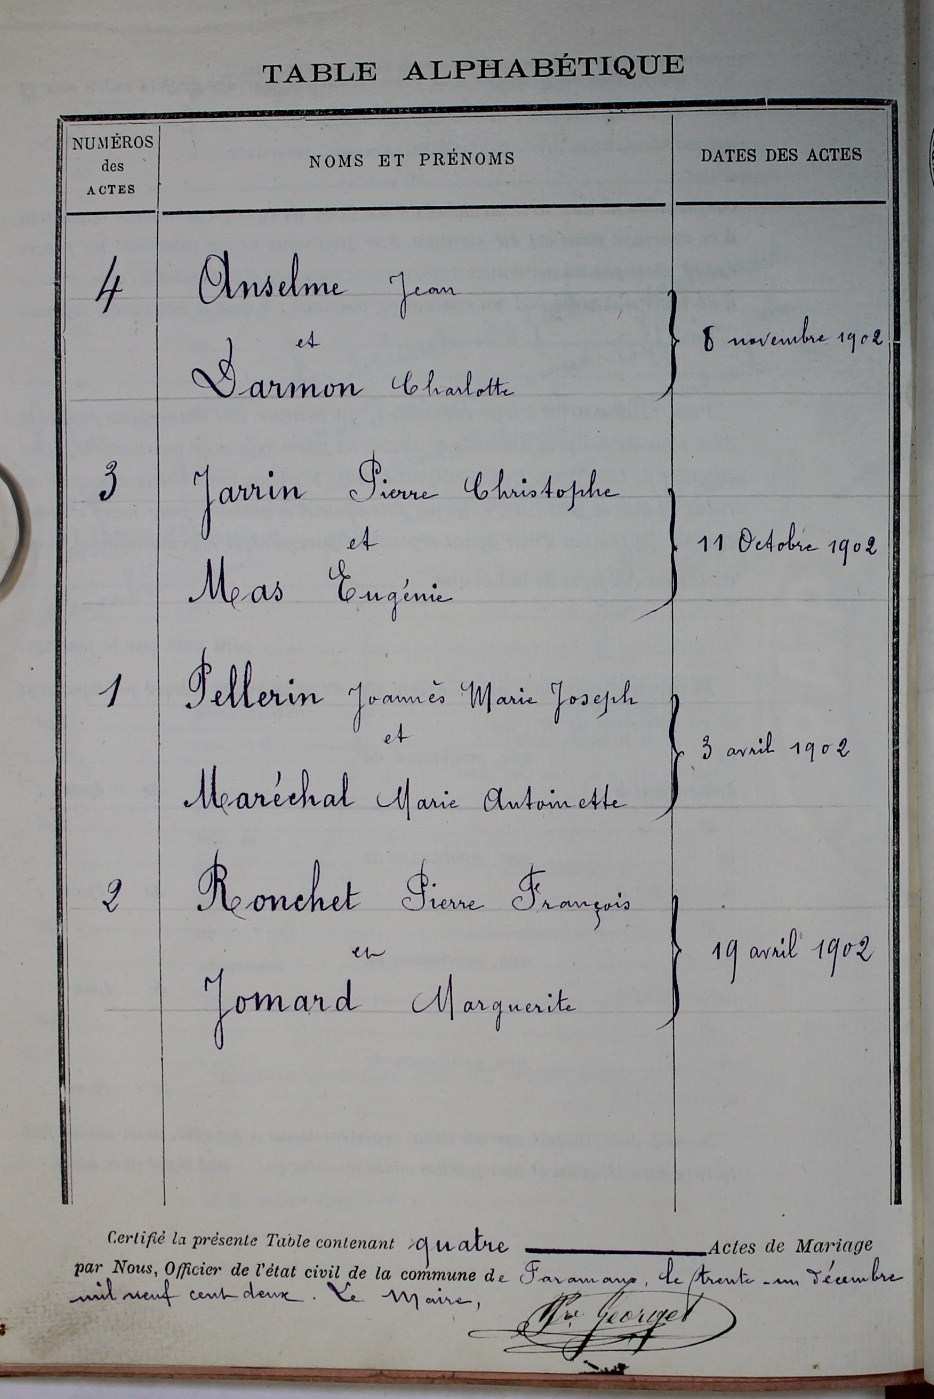 TABLE ALPHABÉTIQUE
NUMÉROS
des
ACTES
NOMS ET PRÉNOMS
DATES DES ACTES
4
Anselme Jean
et
Darmon Charlotte
8 novembre 1902
3
Jarrin Pierre Christophe
et
Mas Eugénie
11 Octobre 1902
1
Pellerin Joannès Marie Joseph
et
Maréchal Marie Antoinette
3 avril 1902
2
Ronchet Pierre François
et
Jomard Marguerite
19 avril 1902
Certifié la présente Table contenant quatre Actes de Mariage
par Nous, Officier de l'état civil de la commune de Faramans, le trente-un décembre
mil neuf cent deux. Le Maire,
Georget